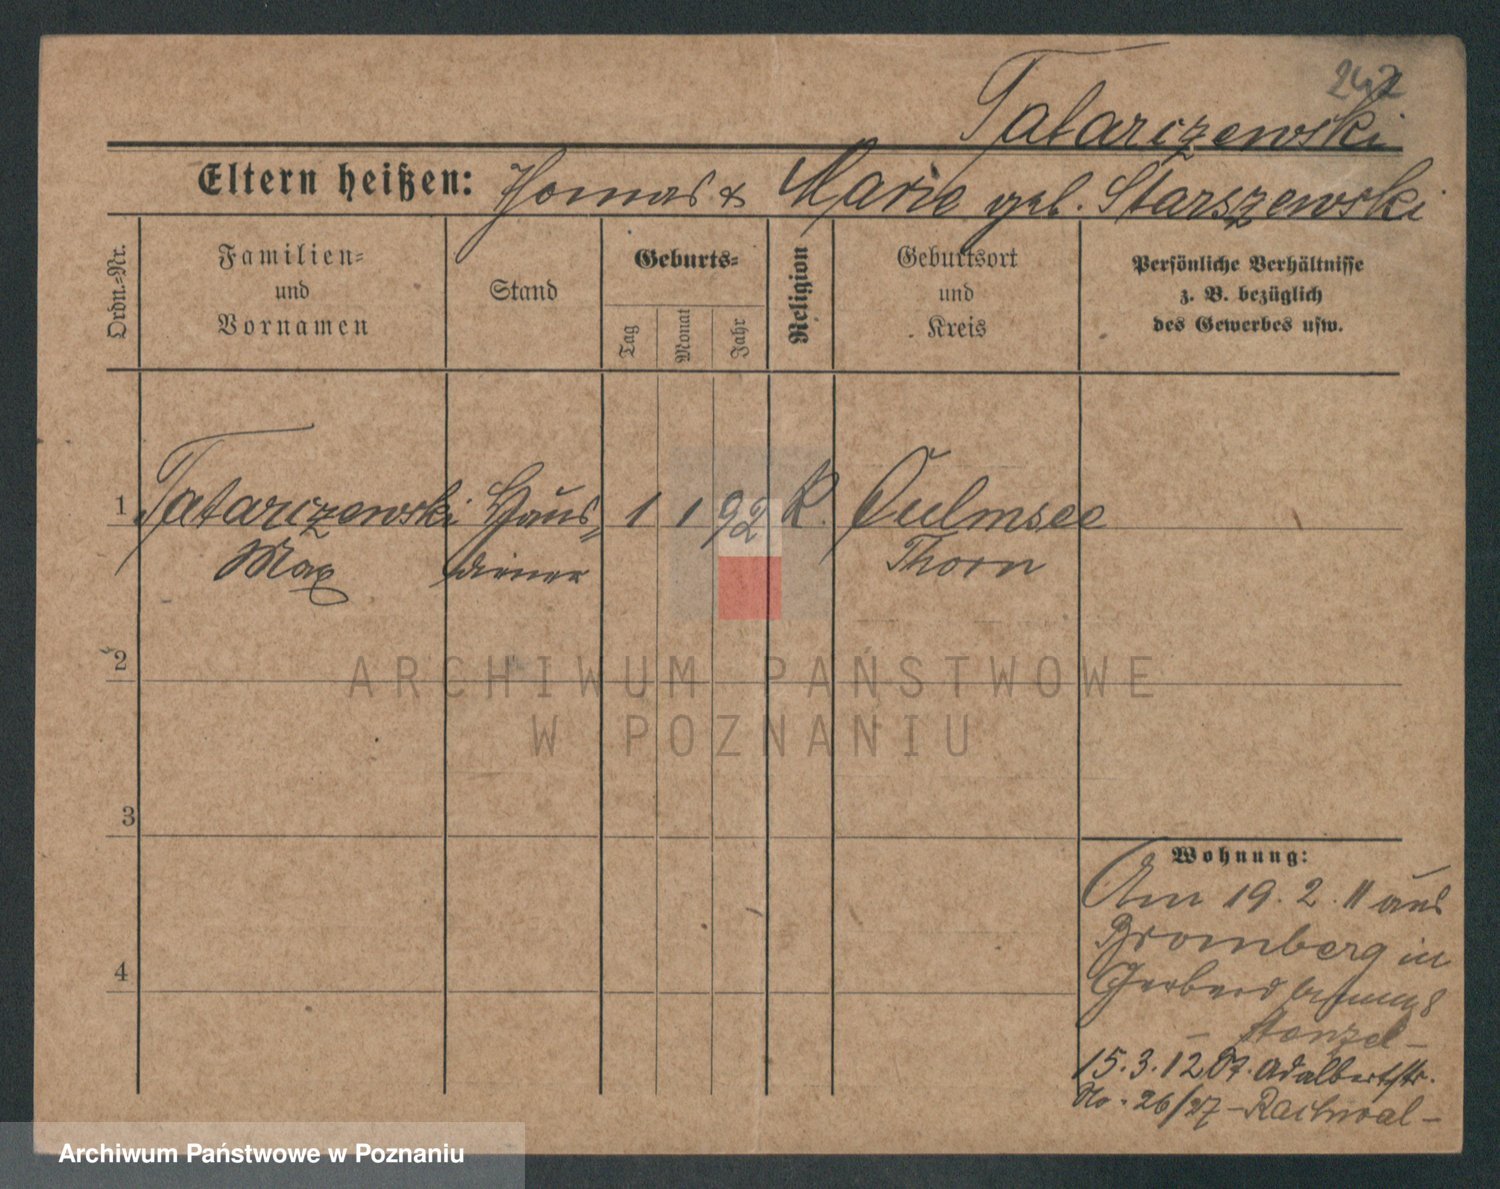 242
Tatarczewski
Eltern heißen: Thomas & Marie geb. Starszewski
Ordn.=Nr.
Familien=
und
Vornamen
Stand
Geburts=
Tag
Monat
Jahr
Religion
Geburtsort
und
Kreis
Persönliche Verhältnisse
z. B. bezüglich
des Gewerbes usw.
1 Tatarczewski Haus= 1 1 92 K. Culmsee
Max diener Thorn
2
ARCHIWUM PAŃSTWOWE
W POZNANIU
3
4
Wohnung:
Am 19. 2. 11 aus
Bromberg in
Gerberdamm 8
– Stenzel –
15. 3. 12 Adalbertstr.
No. 26/27 –
Archiwum Państwowe w Poznaniu